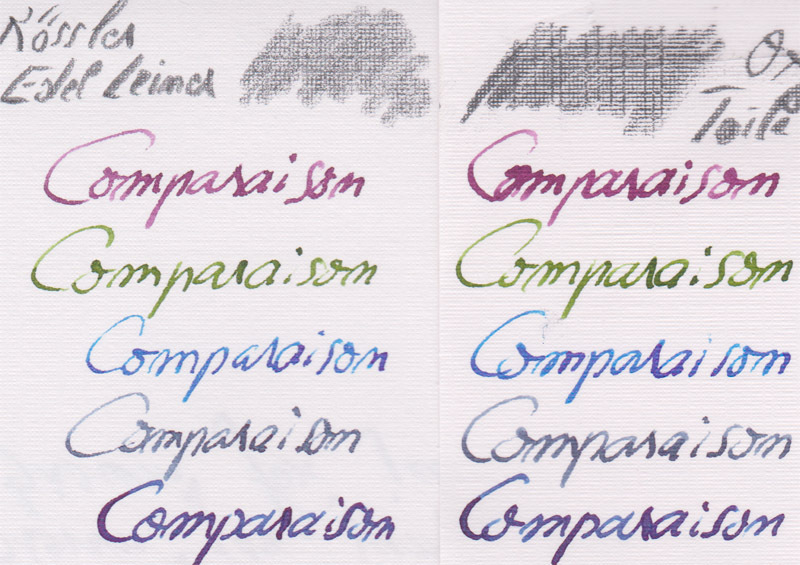 Rössler
Edel Leiner
Comparaison
Comparaison
Comparaison
Comparaison
Comparaison
Toile
Comparaison
Comparaison
Comparaison
Comparaison
Comparaison